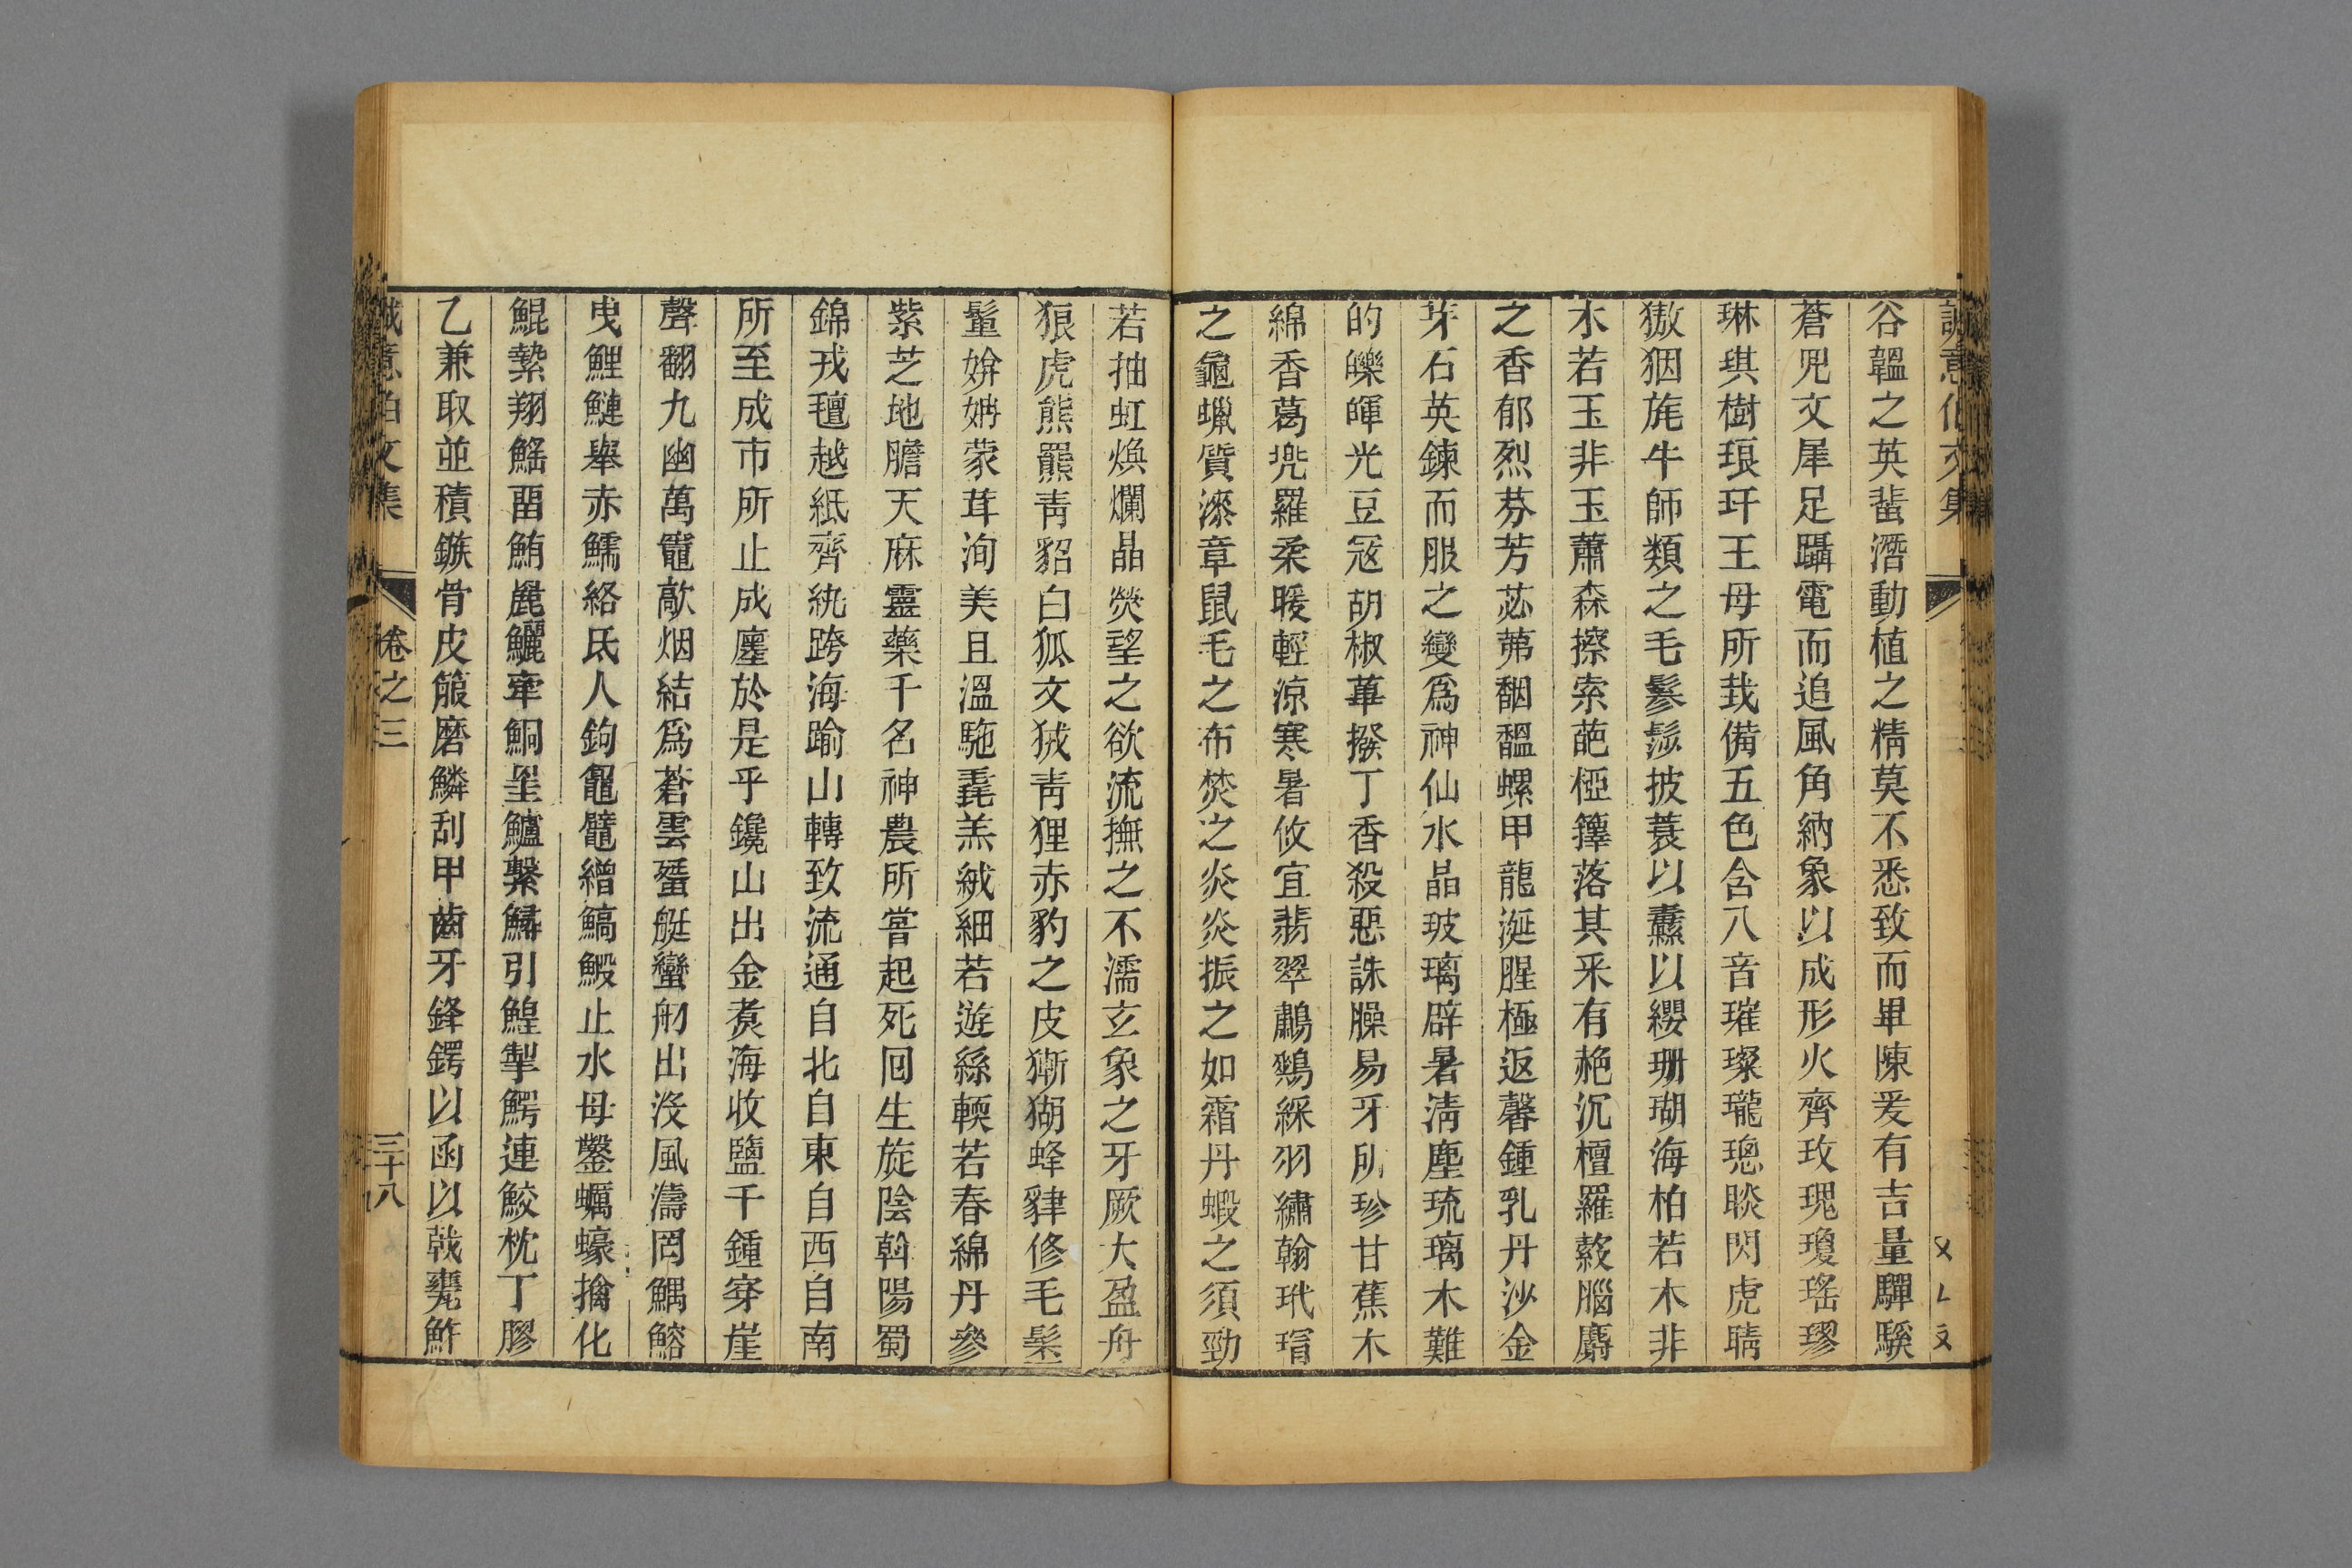 谷韞之英蜚潛動植之精莫不悉致而畢陳爰有吉量驒騱
蒼兕文犀足躡電而追風角納象以成形火齊玫瑰瓊瑤璆
琳琪樹琅玕王母所栽備五色含八音璀璨瓏璁睒閃虎睛
獓㹶旄牛師類之毛鬖髿披蓑以纛以纓珊瑚海柏若木非
木若玉非玉蕭森摖索葩椏籜落其釆有赩沉檀羅欵腦麝
之香郁烈芬芳苾茀馣馧螺甲龍涎腥極返馨鍾乳丹沙金
芽石英鍊而服之變爲神仙水晶玻璃辟暑清塵琉璃木難
的皪暉光豆冦胡椒蓽撥丁香殺惡誅臊易牙所珍甘蕉木
綿香葛兠羅柔暖輕涼寒暑攸宜翡翠鷫鸘綵羽繡翰玳瑁
之龜蠟質漆章鼠毛之布焚之炎炎振之如霜丹蝦之須勁
若抽虹煥爛晶熒望之欲流撫之不濡玄象之牙厥大盈舟
狼虎熊羆青貂白狐文狨青狸赤豹之皮獑猢蜂貄修毛髹
鬣姸姌蒙茸洵美且溫駞毳羔絨細若遊絲輭若春綿丹參
紫芝地膽天麻靈藥千名神農所嘗起死囘生旋陰斡陽蜀
錦戎氊越紙齊紈跨海踰山轉致流通自北自東自西自南
所至成市所止成廛於是乎鑱山出金煑海收鹽千鍾穿崖
聲翻九幽萬竈歊烟結爲蒼雲蜑艇蠻舠出沒風濤罔鰅鰫
曳鯉鰱舉赤鱬絡氐人鉤鼂鼊繒鰝鰕止水母鑿蠣蠔擒化
鯤縶翔鰩罶鮪麗鱺牽鮦罜鱸繫鱘引鰉掣鰐連鮫枕丁膠
乙兼取並積鏃骨皮箙磨鱗刮甲齒牙鋒鍔以函以戟甕鮓
誠意伯文集
卷之三
三十八